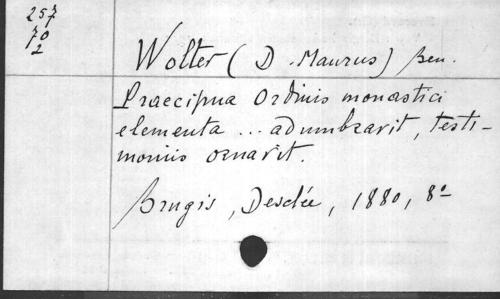 257
70
2
Wolter (D. Maurus) Ben.
Praecipua Ordinis monastici
elementa ... adumbravit, testi-
moniis ornavit.
Brugis, Desclée, 1880, 8º